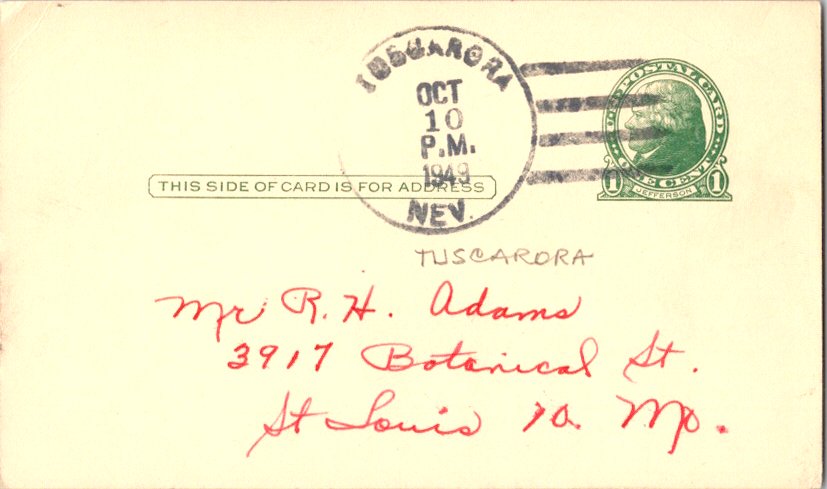 TUSCARORA
OCT
10
P.M.
1949
NEV.
U.S. POSTAL CARD
ONE CENT
1 JEFFERSON 1
THIS SIDE OF CARD IS FOR ADDRESS
TUSCARORA
Mr R. H. Adams
3917 Botanical St.
St Louis 10. Mo.